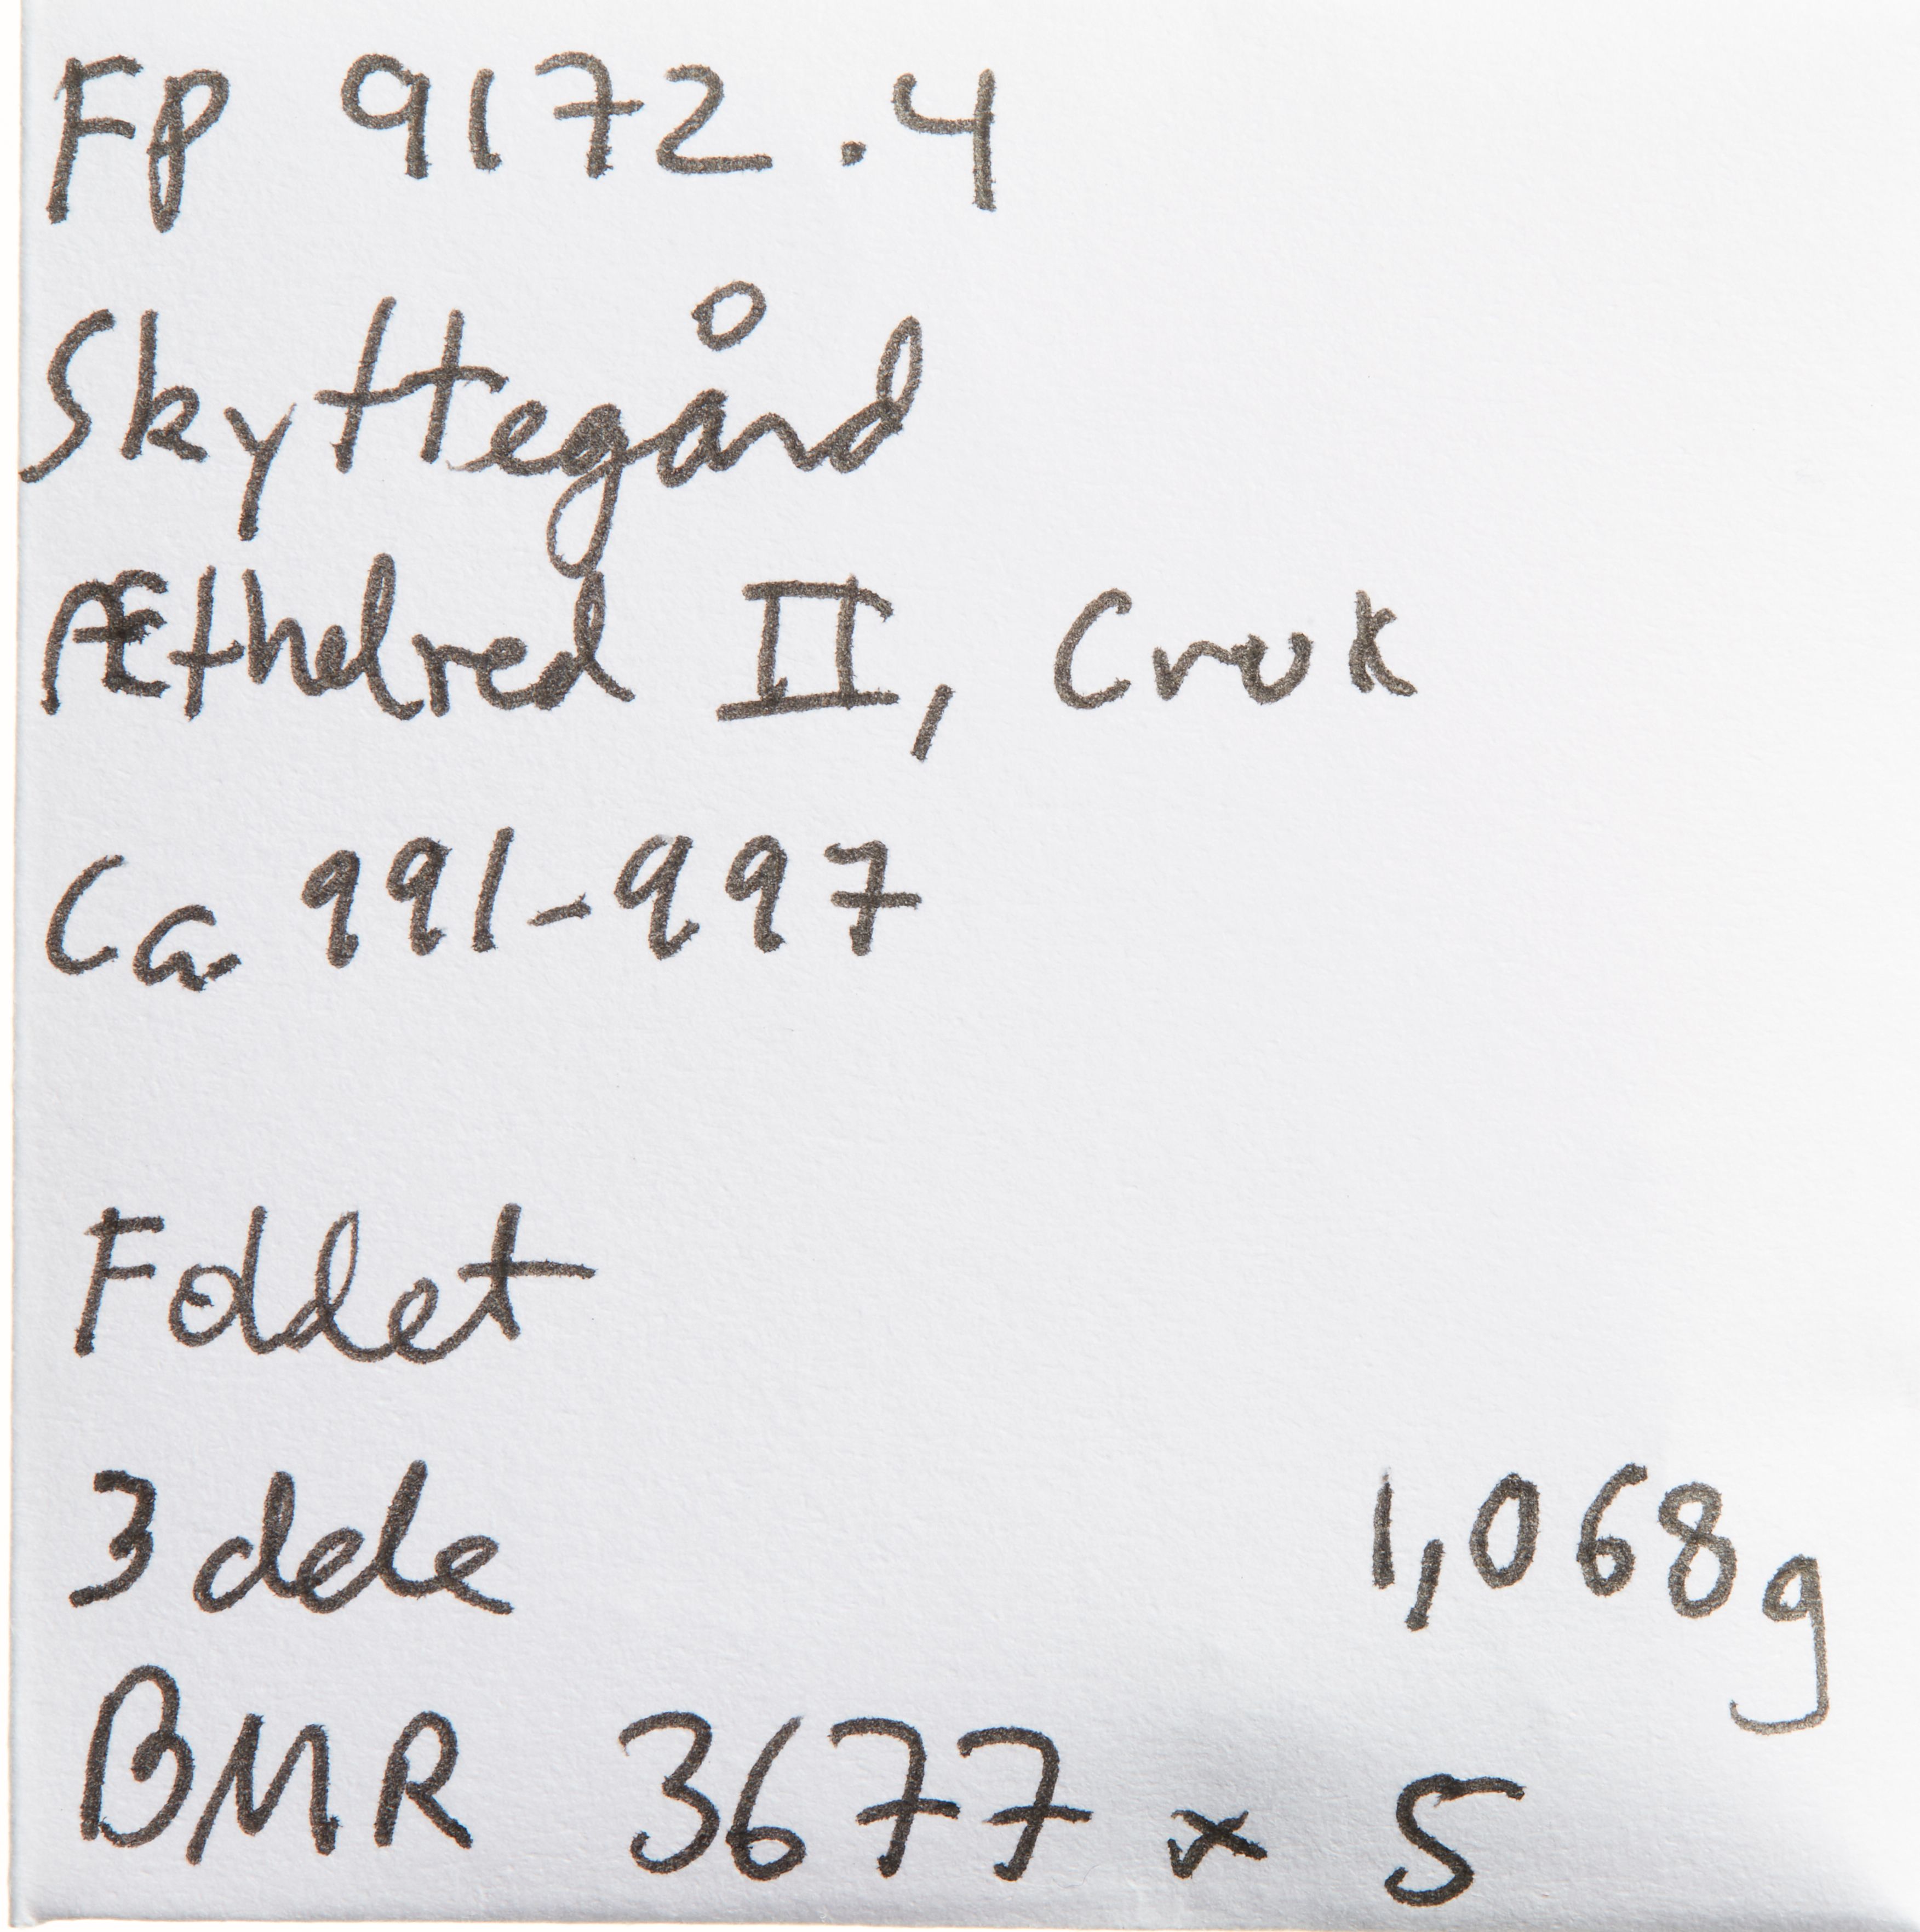 Fp 9172.4
Skyttegård
Æthelred II, Crux
Ca 991-997
Foldet
3 dele 1,068g
BMR 3677 x 5